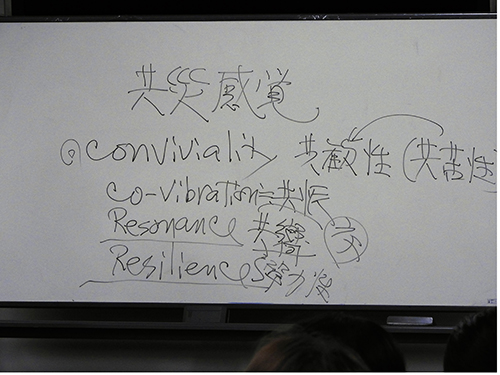 共災感覚
◎conviviality 共歓性 (共苦性)
co-vibration=共振
Resonance 共響
Resilience 弾力